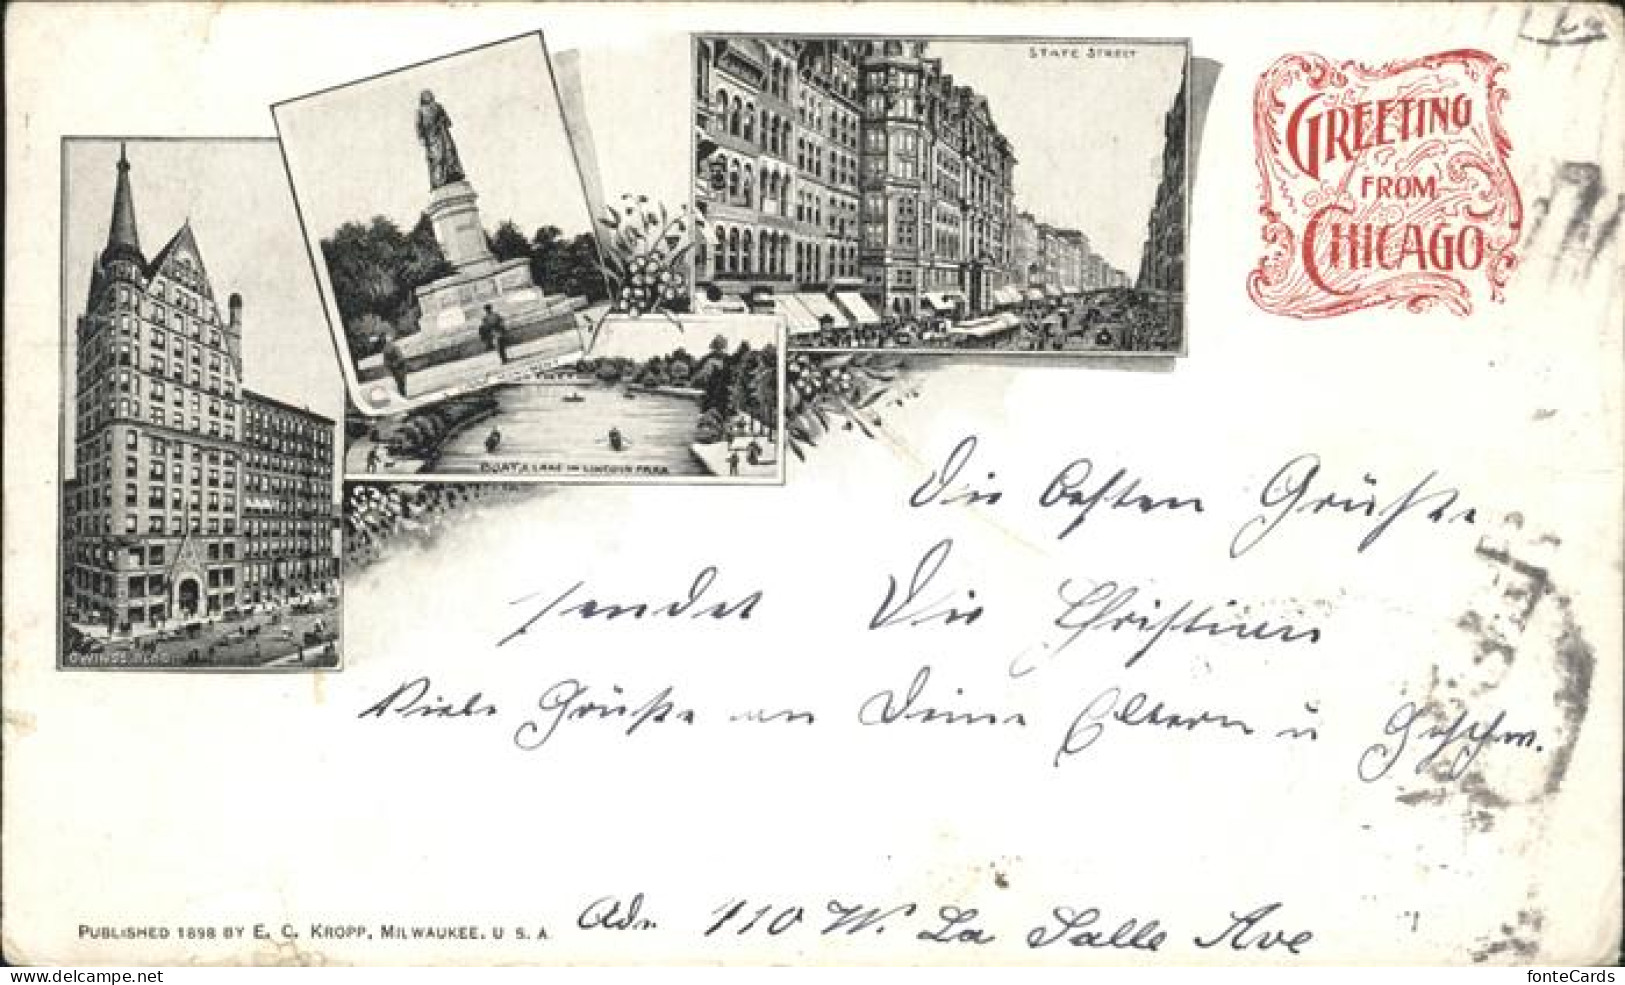 STATE STREET
GREETING
FROM
CHICAGO
BOAT & LAKE IN LINCOLN PARK
OWINGS BLDG.
Die besten Grüße
sendet Dir Christian
Viele Grüße an Deine Eltern u Geschw.
Adr. 110 W. La Salle Ave
PUBLISHED 1898 BY E. C. KROPP, MILWAUKEE. U S. A.
fonteCards